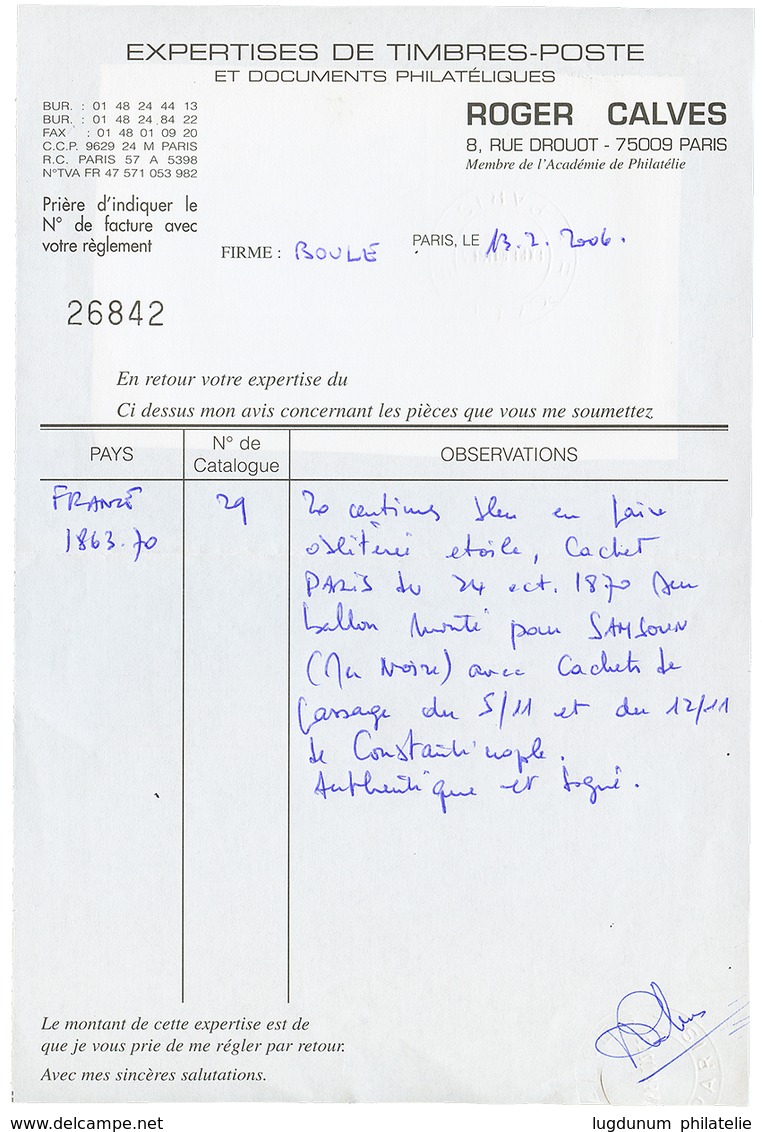 EXPERTISES DE TIMBRES-POSTE
ET DOCUMENTS PHILATÉLIQUES
BUR. : 01 48 24 44 13
BUR. : 01 48 24 84 22
FAX : 01 48 01 09 20
C.C.P. 9629 24 M PARIS
R.C. PARIS 57 A 5398
N°TVA FR 47 571 053 982
ROGER CALVES
8, RUE DROUOT - 75009 PARIS
Membre de l'Académie de Philatélie
Prière d'indiquer le
N° de facture avec
votre règlement
FIRME : BOULE
PARIS, LE 13.2.2006.
26842
En retour votre expertise du
Ci dessus mon avis concernant les pièces que vous me soumettez
PAYS
N° de
Catalogue
OBSERVATIONS
FRANCE
1863.70
29
20 centimes bleu en paire
oblitérée etoile, Cachet
PARIS du 24 oct. 1870 sur
ballon monté pour SAMSOUN
(Mer Noire) avec Cachets de
passage du 5/11 et du 12/11
de Constantinople.
Authentique et signé.
Le montant de cette expertise est de
que je vous prie de me régler par retour.
Avec mes sincères salutations.
www.delcampe.net
lugdunum philatelie